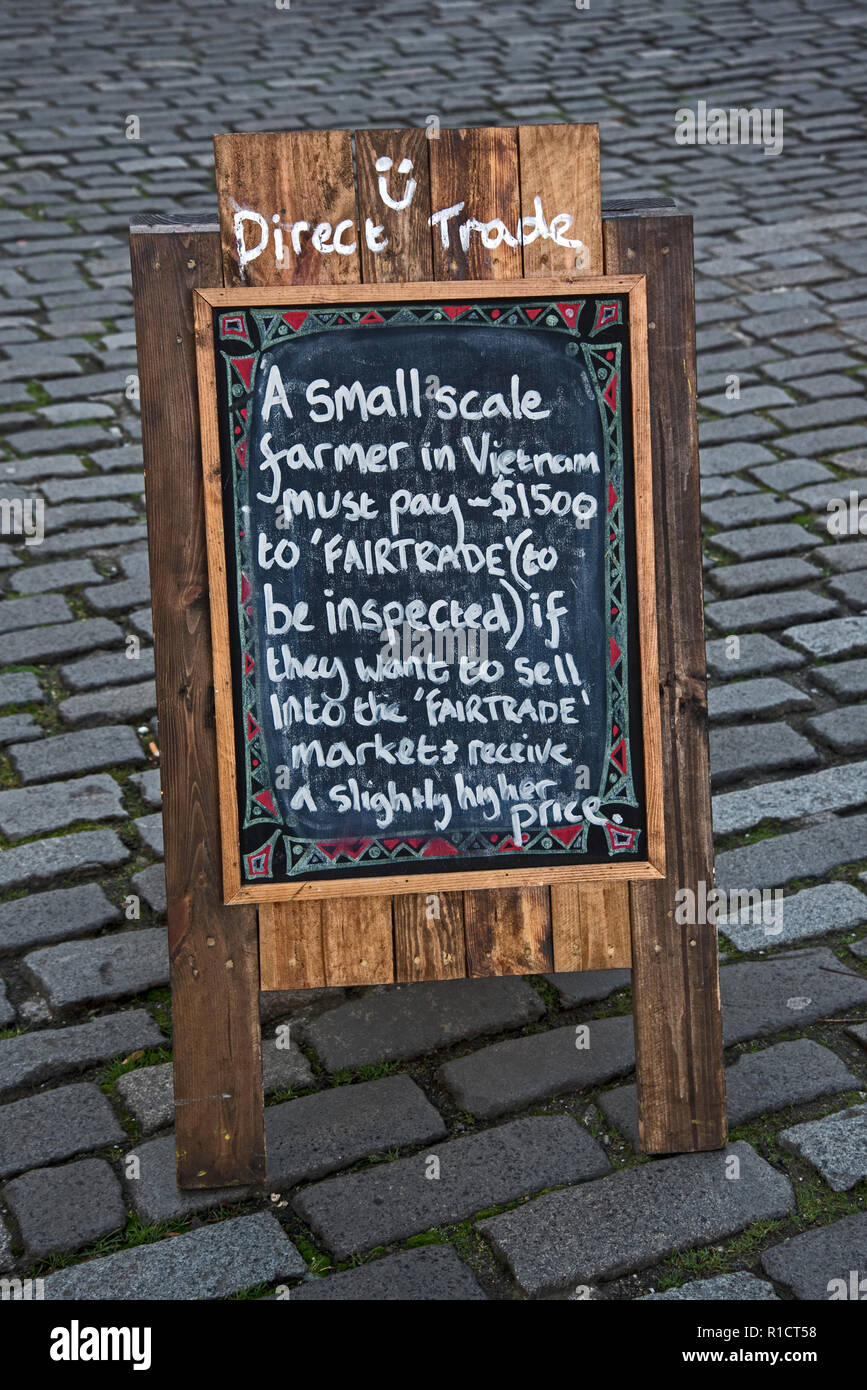 Direct Trade
A small scale
farmer in Vietnam
must pay ~$1500
to 'FAIRTRADE' (to
be inspected) if
they want to sell
into the 'FAIRTRADE'
market & receive
a slightly higher
price.
alamy
Image ID: R1CT58
www.alamy.com